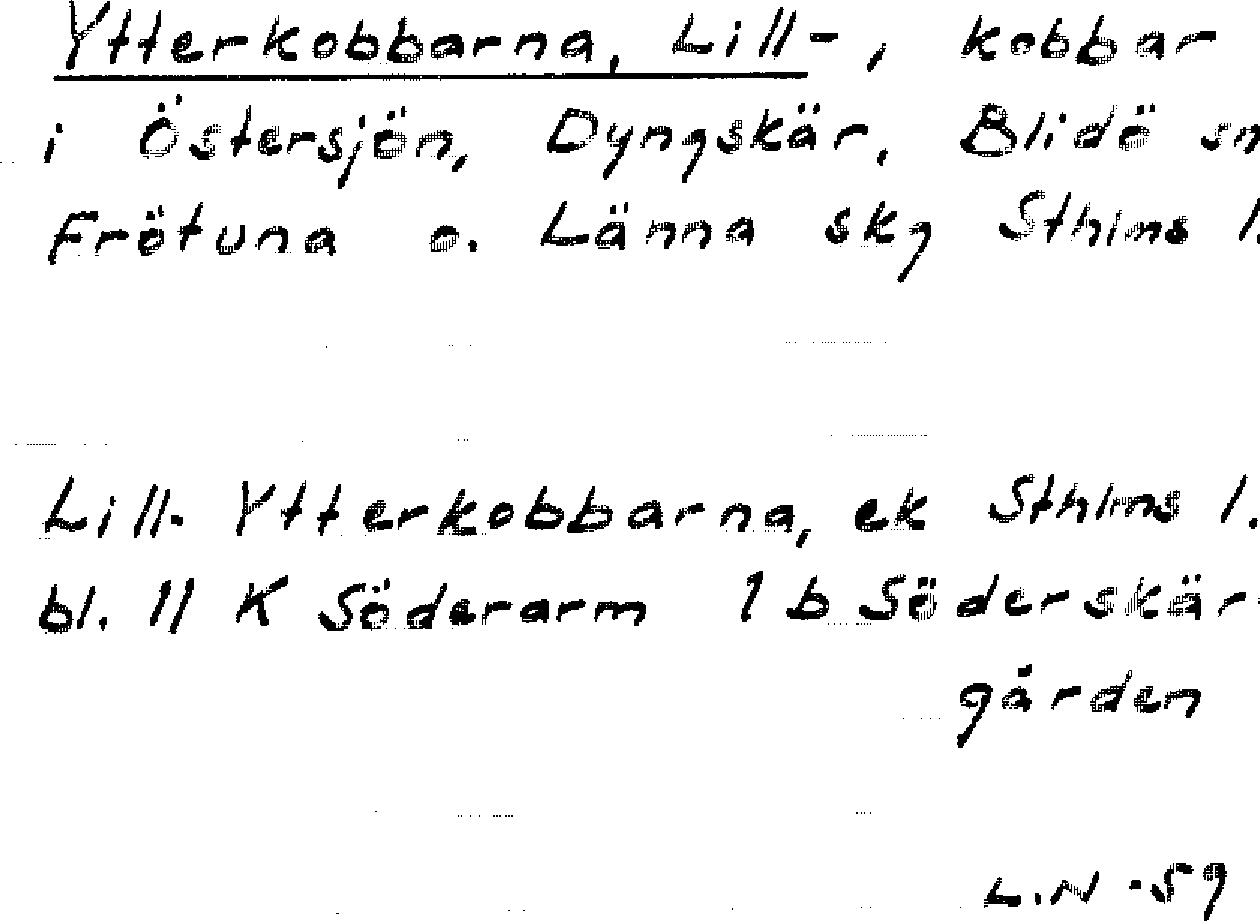 Ytterkobbarna, Lill-, kobbar
i Östersjön, Dyngskär, Blidö sn
Frötuna o. Länna skg Sthlms l.
Lill- Ytterkobbarna, ek Sthlms l.
bl. 11 K Söderarm 1 b Söderskär-
gården
L.N -59